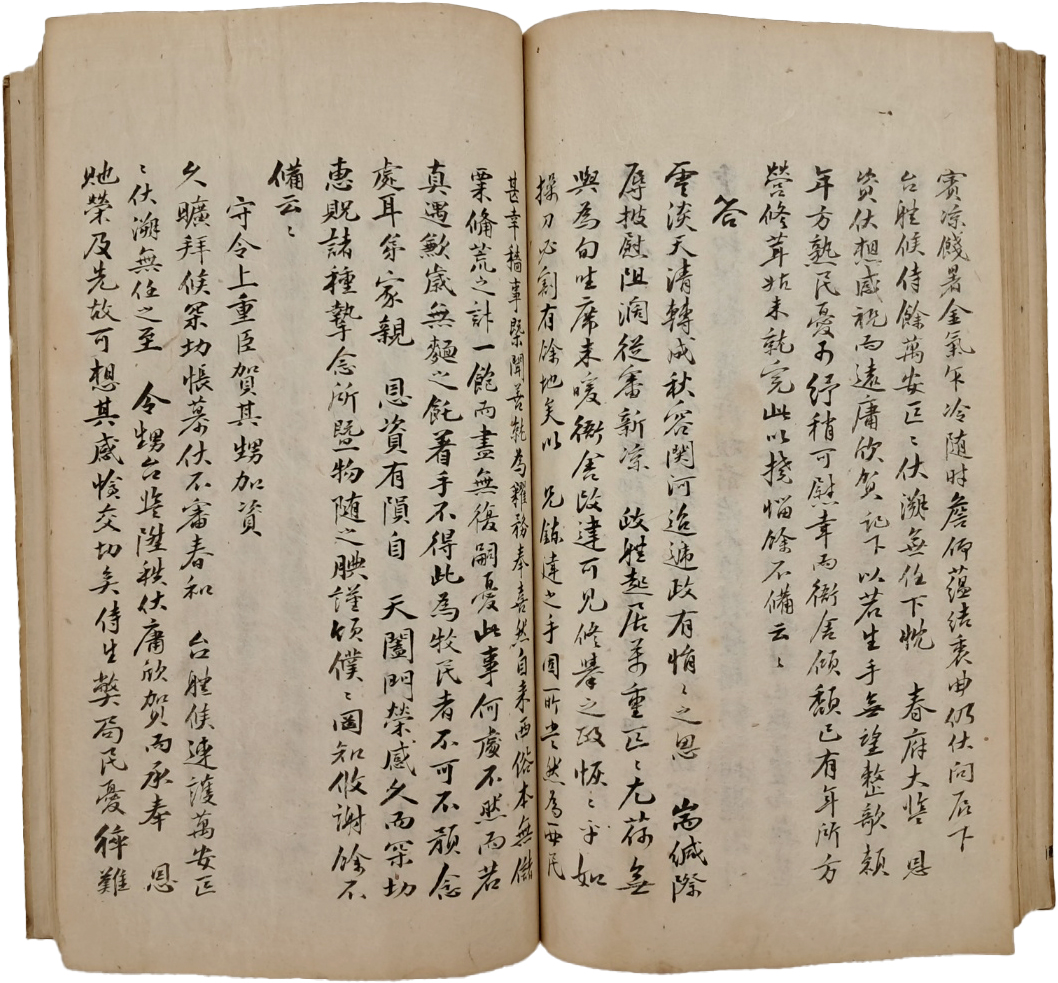 賓凉餞暑金氣乍冷隨時詹仰蘊結衷曲仍伏問辰下
台體候侍餘萬安区〻伏溯無任下忱 春府大監 恩
資伏想感祝而遠庸欣賀記下以若生手無望整欹頹
年方熟民憂可紓稍可慰幸而衙舍傾頹已有年所方
營修葺姑未就完此以撓惱餘不備云〻
答
雲淡天清轉成秋容関河迢遞政有悄〻之思 耑緘際
辱披慰阻濶從審新凉 政體起居萬重区〻尤荷無
與為勾 坐席未暖衙舍改建可見修擧之政恢〻乎如
操刀必割有餘地矣以 兄鍊達之手固一時 然為西民
甚幸穡事槩聞善 為糴務奉喜然自來西俗本無儲
粟備荒之計一飽而盡無復嗣憂此事何處不然而若
真遇歉歲無麵之飥着手不得此為牧民者不可不頷念
處耳弟家親 恩資有隕自 天闔門榮感久而罙切
惠貺諸種摯念所曁物隨之腆謹領僕〻罔知攸謝餘不
備云〻
守令上重臣賀其甥加資
久曠拜候罙切悵慕伏不審春和 台體候連護萬安区
〻伏溯無任之至 令甥台監陞秩伏庸欣賀而承奉 恩
貤榮及先故可想其感愴交切矣侍生獘局民憂 難